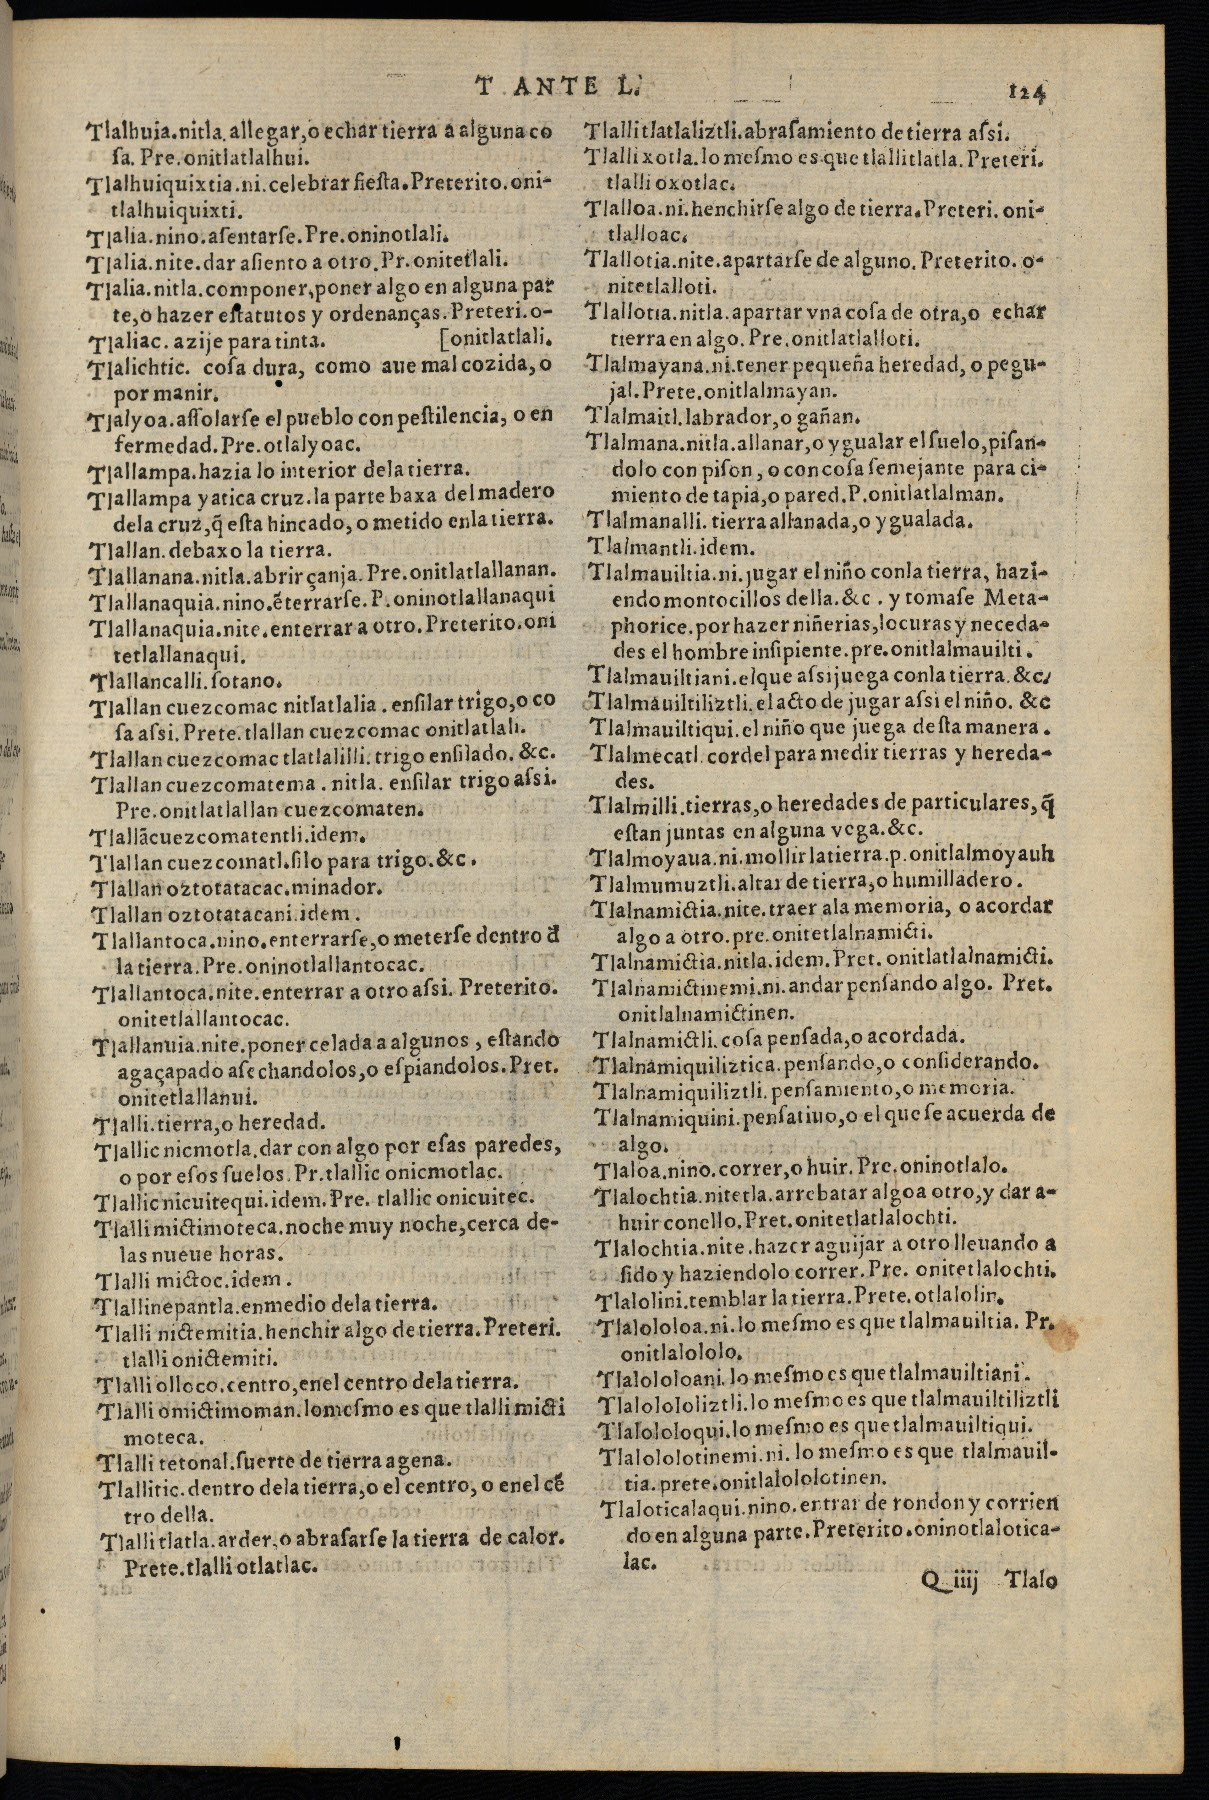 T ANTE L.
124
Tlalhuia.nitla.allegar,o echar tierra a alguna co
ſa. Pre.onitlatlalhui.
Tlalhuiquixtia.ni.celebrar fieſta.Preterito.oni-
tlalhuiquixti.
Tlalia.nino.aſentarſe.Pre.oninotlali.
Tlalia.nite.dar aſiento a otro.Pr.onitetlali.
Tlalia.nitla.componer,poner algo en alguna par
te,o hazer eſtatutos y ordenanças.Preteri.o-
Tlaliac. azije para tinta. [onitlatlali.
Tlalichtic. coſa dura, como aue mal cozida, o
por manir.
Tlalyoa.aſſolarſe el pueblo con peſtilencia, o en
fermedad.Pre.otlalyoac.
Tlallampa.hazia lo interior dela tierra.
Tlallampa yatica cruz.la parte baxa del madero
dela cruz,q̃ eſta hincado, o metido enla tierra.
Tlallan.debaxo la tierra.
Tlallanana.nitla.abrir çanja.Pre.onitlatlallanan.
Tlallanaquia.nino.ẽterrarſe.P.oninotlallanaqui
Tlallanaquia.nite.enterrar a otro.Preterito.oni
tetlallanaqui.
Tlallancalli.ſotano.
Tlallan cuezcomac nitlatlalia.enſilar trigo,o co
ſa aſsi.Prete.tlallan cuezcomac onitlatlali.
Tlallan cuezcomac tlatlalilli.trigo enſilado.&c.
Tlallan cuezcomatema.nitla. enſilar trigo aſsi.
Pre.onitlatlallan cuezcomaten.
Tlallãcuezcomatentli.idem.
Tlallan cuezcomatl.ſilo para trigo.&c.
Tlallan oztotatacac.minador.
Tlallan oztotatacani.idem.
Tlallantoca.nino.enterrarſe,o meterſe dentro d̃
la tierra.Pre.oninotlallantocac.
Tlallantoca.nite.enterrar a otro aſsi. Preterito.
onitetlallantocac.
Tlallanuia.nite.poner celada a algunos, eſtando
agaçapado aſechandolos,o eſpiandolos.Pret.
onitetlallanui.
Tlalli.tierra,o heredad.
Tlallic nicmotla.dar con algo por eſas paredes,
o por eſos ſuelos.Pr.tlallic onicmotlac.
Tlallic nicuitequi.idem.Pre. tlallic onicuitec.
Tlalli mictimoteca.noche muy noche,cerca de-
las nueue horas.
Tlalli mictoc.idem.
Tlallinepantla.enmedio dela tierra.
Tlalli nictemitia.henchir algo de tierra.Preteri.
tlalli onictemiti.
Tlalli olloco.centro,enel centro dela tierra.
Tlalli omictimoman.lomeſmo es que tlalli micti
moteca.
Tlalli tetonal.ſuerte de tierra agena.
Tlallitic.dentro dela tierra,o el centro, o enel cẽ
tro della.
Tlalli tlatla.arder,o abraſarſe la tierra de calor.
Prete.tlalli otlatlac.
Tlalli tlatlaliztli.abraſamiento de tierra aſsi.
Tlalli xotla.lo meſmo es que tlallitlatla.Preteri.
tlalli oxotlac.
Tlalloa.ni.henchirſe algo de tierra.Preteri.oni-
tlalloac.
Tlallotia.nite.apartarſe de alguno.Preterito.o-
nitetlalloti.
Tlallotia.nitla.apartar vna coſa de otra,o echar
tierra en algo.Pre.onitlatlalloti.
Tlalmayana.ni.tener pequeña heredad, o pegu-
jal.Prete.onitlalmayan.
Tlalmaitl.labrador,o gañan.
Tlalmana.nitla.allanar,o ygualar el ſuelo,piſan-
dolo con piſon, o con coſa ſemejante para ci-
miento de tapia,o pared.P.onitlatlalman.
Tlalmanalli.tierra allanada,o ygualada.
Tlalmantli.idem.
Tlalmauiltia.ni.jugar el niño conla tierra, hazi-
endo montocillos della.&c. y tomaſe Meta-
phorice.por hazer niñerias,locuras y neceda-
des el hombre inſipiente.pre.onitlalmauilti.
Tlalmauiltiani.elque aſsi juega conla tierra.&c.
Tlalmauiltiliztli.el acto de jugar aſsi el niño.&c
Tlalmauiltiqui.el niño que juega deſta manera.
Tlalmecatl.cordel para medir tierras y hereda-
des.
Tlalmilli.tierras,o heredades de particulares,q̃
eſtan juntas en alguna vega.&c.
Tlalmoyaua.ni.mollir la tierra.p.onitlalmoyauh
Tlalmumuztli.altar de tierra,o humilladero.
Tlalnamictia.nite.traer ala memoria, o acordar
algo a otro.pre.onitetlalnamicti.
Tlalnamictia.nitla.idem.Pret. onitlatlalnamicti.
Tlalnamictinemi.ni.andar penſando algo. Pret.
onitlalnamictinen.
Tlalnamictli.coſa penſada,o acordada.
Tlalnamiquiliztica.penſando,o conſiderando.
Tlalnamiquiliztli.penſamiento,o memoria.
Tlalnamiquini.penſatiuo,o el que ſe acuerda de
algo.
Tlaloa.nino.correr,o huir.Pre.oninotlalo.
Tlalochtia.nitetla.arrebatar algo a otro,y dar a-
huir conello.Pret.onitetlatlalochti.
Tlalochtia.nite.hazer aguijar a otro lleuando a
ſido y haziendolo correr.Pre. onitetlalochti.
Tlalolini.temblar la tierra.Prete.otlalolin.
Tlalololoa.ni.lo meſmo es que tlalmauiltia. Pr.
onitlalololo.
Tlalololoani.lo meſmo es que tlalmauiltiani.
Tlalolololiztli.lo meſmo es que tlalmauiltiliztli
Tlalololoqui.lo meſmo es que tlalmauiltiqui.
Tlalololotinemi.ni.lo meſmo es que tlalmauil-
tia.prete.onitlalololotinen.
Tlaloticalaqui.nino.entrar de rondon y corrien
do en alguna parte.Preterito.oninotlalotica-
lac.
Q iiij Tlalo